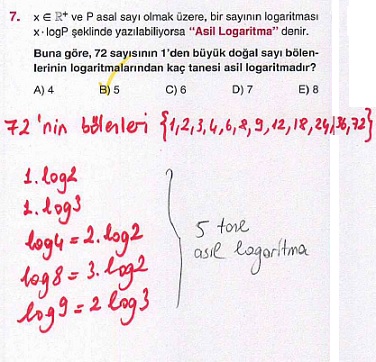 7. x ∈ ℝ⁺ ve P asal sayı olmak üzere, bir sayının logaritması
x · logP şeklinde yazılabiliyorsa "Asil Logaritma" denir.
Buna göre, 72 sayısının 1'den büyük doğal sayı bölen-
lerinin logaritmalarından kaç tanesi asil logaritmadır?
A) 4 B) 5 C) 6 D) 7 E) 8
72'nin bölenleri {1,2,3,4,6,8,9,12,18,24,36,72}
1.log2
1.log3
log4 = 2.log2
log8 = 3.log2
log9 = 2 log3
5 tane
asil logaritma